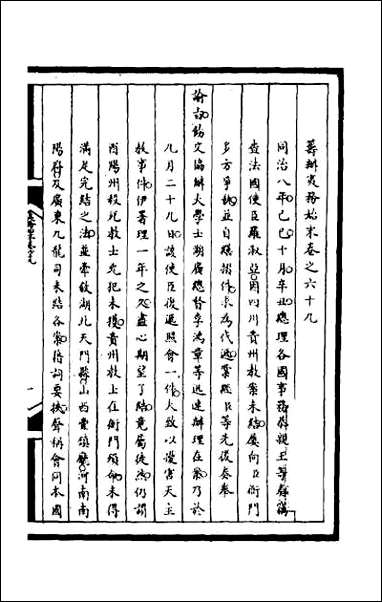 籌辦夷務始末卷之六十九
同治八年己巳十月辛丑總理各國事務恭親王等奏竊
查法國使臣羅淑亞因四川貴州教案未結屢向臣衙門
多方爭執並自繕摺件求為代遞業經臣等先後奏奉
諭旨飭交協辦大學士湖廣總督李鴻章等迅速辦理在案乃於
九月二十九日該使臣復遞照會一件大致以凌害天主
教事件伊等理一年之久盡心期望了結竟屬徒然仍謂
酉陽州殺死教士兇犯未獲貴州教士在衙門殞命未得
滿足完結之法並牽敘湖北天門縣山西豐鎮廳河南南
陽府及廣東九龍司未結各案措詞要挾聲稱會同本國